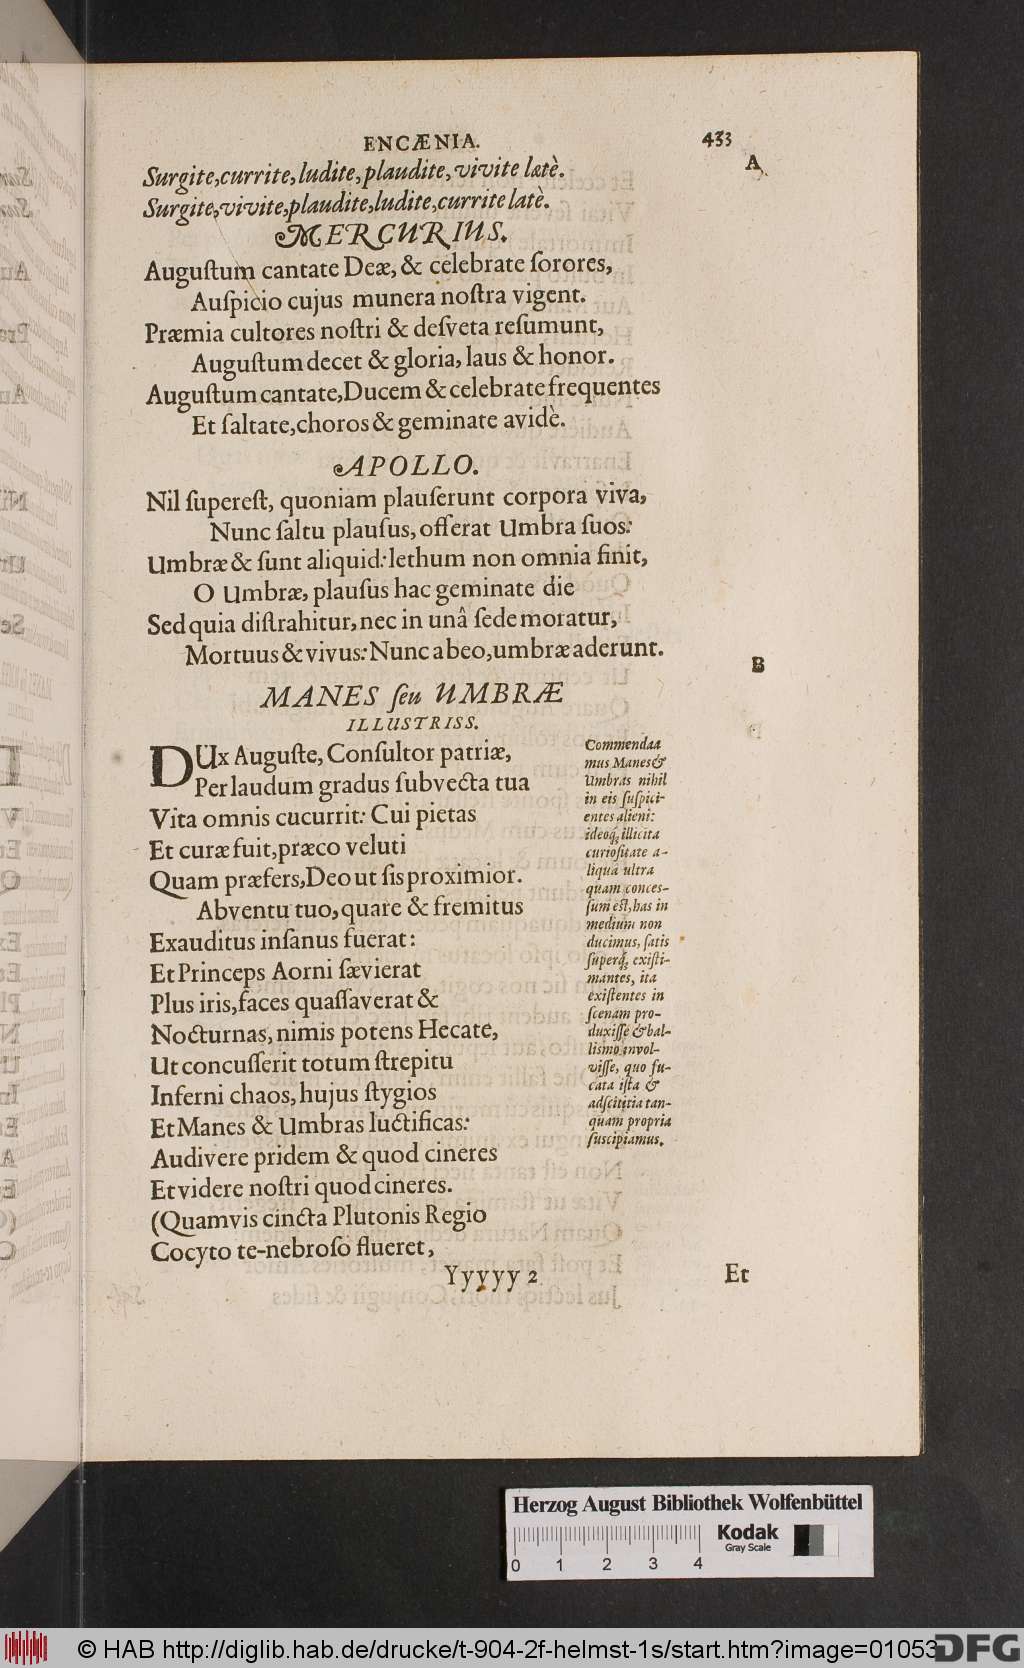 ENCÆNIA. 433
A
Surgite,currite,ludite,plaudite,vivite latè.
Surgite,vivite,plaudite,ludite,currite latè.
MERCURIUS.
Auguſtum cantate Deæ, & celebrate ſorores,
Auſpicio cujus munera noſtra vigent.
Præmia cultores noſtri & deſveta reſumunt,
Auguſtum decet & gloria, laus & honor.
Auguſtum cantate,Ducem & celebrate frequentes
Et ſaltate,choros & geminate avidè.
APOLLO.
Nil ſupereſt, quoniam plauſerunt corpora viva,
Nunc ſaltu plauſus, offerat Umbra ſuos:
Umbræ & ſunt aliquid: lethum non omnia finit,
O Umbræ, plauſus hac geminate die
Sed quia diſtrahitur, nec in unâ ſede moratur,
Mortuus & vivus: Nunc abeo, umbræ aderunt.
B
MANES ſeu UMBRÆ
ILLUSTRISS.
DUx Auguſte, Conſultor patriæ,
Per laudum gradus ſubvecta tua
Vita omnis cucurrit: Cui pietas
Et curæ fuit, præco veluti
Quam præfers, Deo ut ſis proximior.
Abventu tuo, quare & fremitus
Exauditus inſanus fuerat:
Et Princeps Aorni ſævierat
Plus iris, faces quaſſaverat &
Nocturnas, nimis potens Hecate,
Ut concuſſerit totum ſtrepitu
Inferni chaos, hujus ſtygios
Et Manes & Umbras luctificas:
Audivere pridem & quod cineres
Et videre noſtri quod cineres.
(Quamvis cincta Plutonis Regio
Cocyto te-nebroſo flueret,
Commendaa
mus Manes &
Umbras nihil
in eis ſuſpici-
entes alieni:
ideoq́, illicita
curioſitate a-
liqua ultra
quam conces-
ſum eſt, has in
medium non
ducimus, ſatis
ſuperq́, exiſti-
mantes, ita
exiſtentes in
ſcenam pro-
duxiſſe & bal-
liſmo invol-
viſſe, quo fu-
cata iſta &
adſcititia tan-
quam propria
ſuscipiamus.
Yyyyy 2
Et
Herzog August Bibliothek Wolfenbüttel
0 1 2 3 4
Kodak
Gray Scale
© HAB http://diglib.hab.de/drucke/t-904-2f-helmst-1s/start.htm?image=01053
DFG